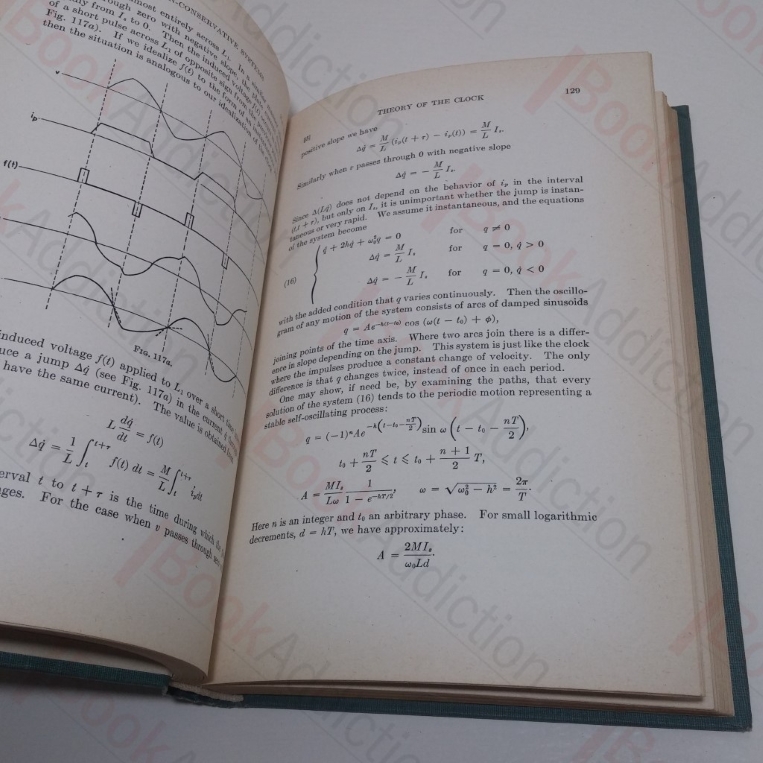 -CONSERVATIVE SYSTEMS
most entirely across L₁.
rough zero with negative slope
from Iₛ to 0. Then the induced voltage
of a short pulse across L₁ of opposite sign from
Fig. 117a). If we idealize f(t) to the form of
then the situation is analogous to our idealization of
v
iₚ
f(t)
Fig. 117a.
induced voltage f(t) applied to L₁ over a short time
uce a jump Δq̇ (see Fig. 117a) in the current
have the same current). The value is obtained from
L dq̇/dt = f(t)
Δq̇ = 1/L ∫ₜᵗ⁺τ f(t) dt = M/L ∫ₜᵗ⁺τ iₚdt
erval t to t + τ is the time during which the
ges. For the case when v passes through
THEORY OF THE CLOCK 129
positive slope we have
Δq̇ = M/L (iₚ(t + τ) − iₚ(t)) = M/L Iₛ.
Similarly when v passes through 0 with negative slope
Δq̇ = − M/L Iₛ.
Since Δ(Lq̇) does not depend on the behavior of iₚ in the interval
(t,t + τ), but only on Iₛ, it is unimportant whether the jump is instan-
taneous or very rapid. We assume it instantaneous, and the equations
of the system become
q̈ + 2hq̇ + ω₀²q = 0 for q ≠ 0
(16) Δq̇ = M/L Iₛ for q = 0, q̇ > 0
Δq̇ = − M/L Iₛ for q = 0, q̇ < 0
with the added condition that q varies continuously. Then the oscillo-
gram of any motion of the system consists of arcs of damped sinusoids
q = Ae^−h(t−t₀) cos (ω(t − t₀) + φ),
joining points of the time axis. Where two arcs join there is a differ-
ence in slope depending on the jump. This system is just like the clock
where the impulses produce a constant change of velocity. The only
difference is that q changes twice, instead of once in each period.
One may show, if need be, by examining the paths, that every
solution of the system (16) tends to the periodic motion representing a
stable self-oscillating process:
q = (−1)ⁿAe^−h(t−t₀−nT/2) sin ω (t − t₀ − nT/2),
t₀ + nT/2 ≤ t ≤ t₀ + n + 1/2 T,
A = MIₛ/Lω 1/1 − e^−hT/2, ω = √ω₀² − h² = 2π/T.
Here n is an integer and t₀ an arbitrary phase. For small logarithmic
decrements, d = hT, we have approximately:
A = 2MIₛ/ω₀Ld.
BookAddiction